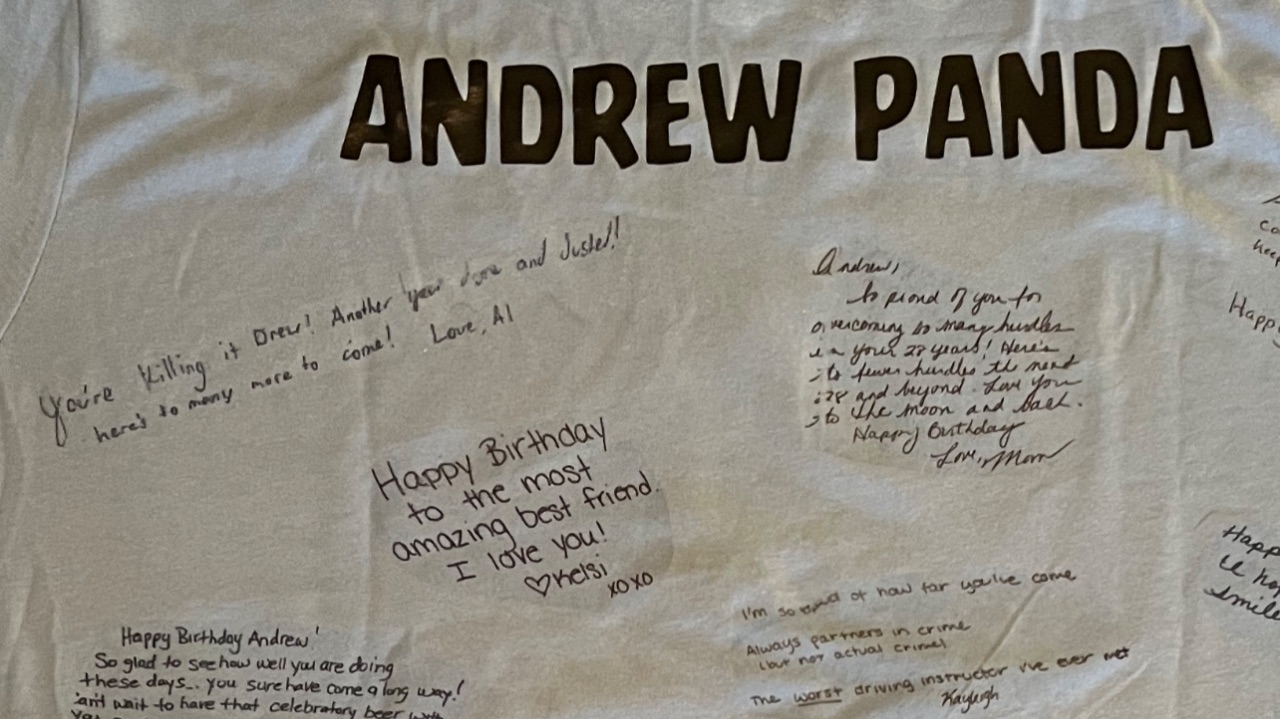 ANDREW PANDA
You're Killing it Drew! Another year done and Justed!
here's to many more to come! Love, Al
Andrew,
So proud of you for
overcoming so many hurdles
in your 28 years! Here's
to fewer hurdles the next
28 and beyond. Love you
to the moon and back.
Happy Birthday
Love, Mom
Happy Birthday
to the most
amazing best friend.
I love you!
♡Kelsi
xoxo
I'm so proud of how far you've come
Always partners in crime
(but not actual crime)
The worst driving instructor I've ever met
Kayleigh
Happy Birthday Andrew!
So glad to see how well you are doing
these days... you sure have come a long way!
can't wait to have that celebratory beer with
Happy
Happ
smile